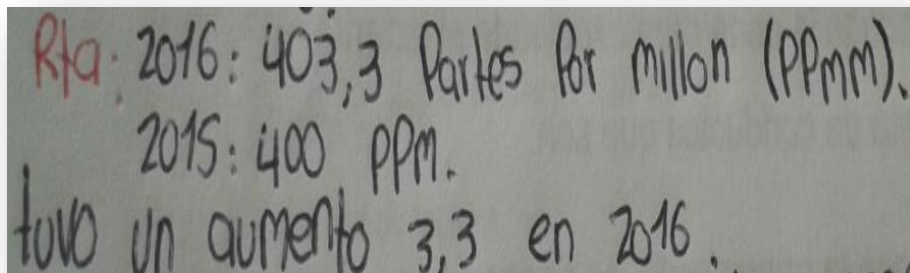 Rta: 2016: 403,3 Partes Por millon (PPmm).
2015: 400 PPM.
tuvo un aumento 3,3 en 2016.